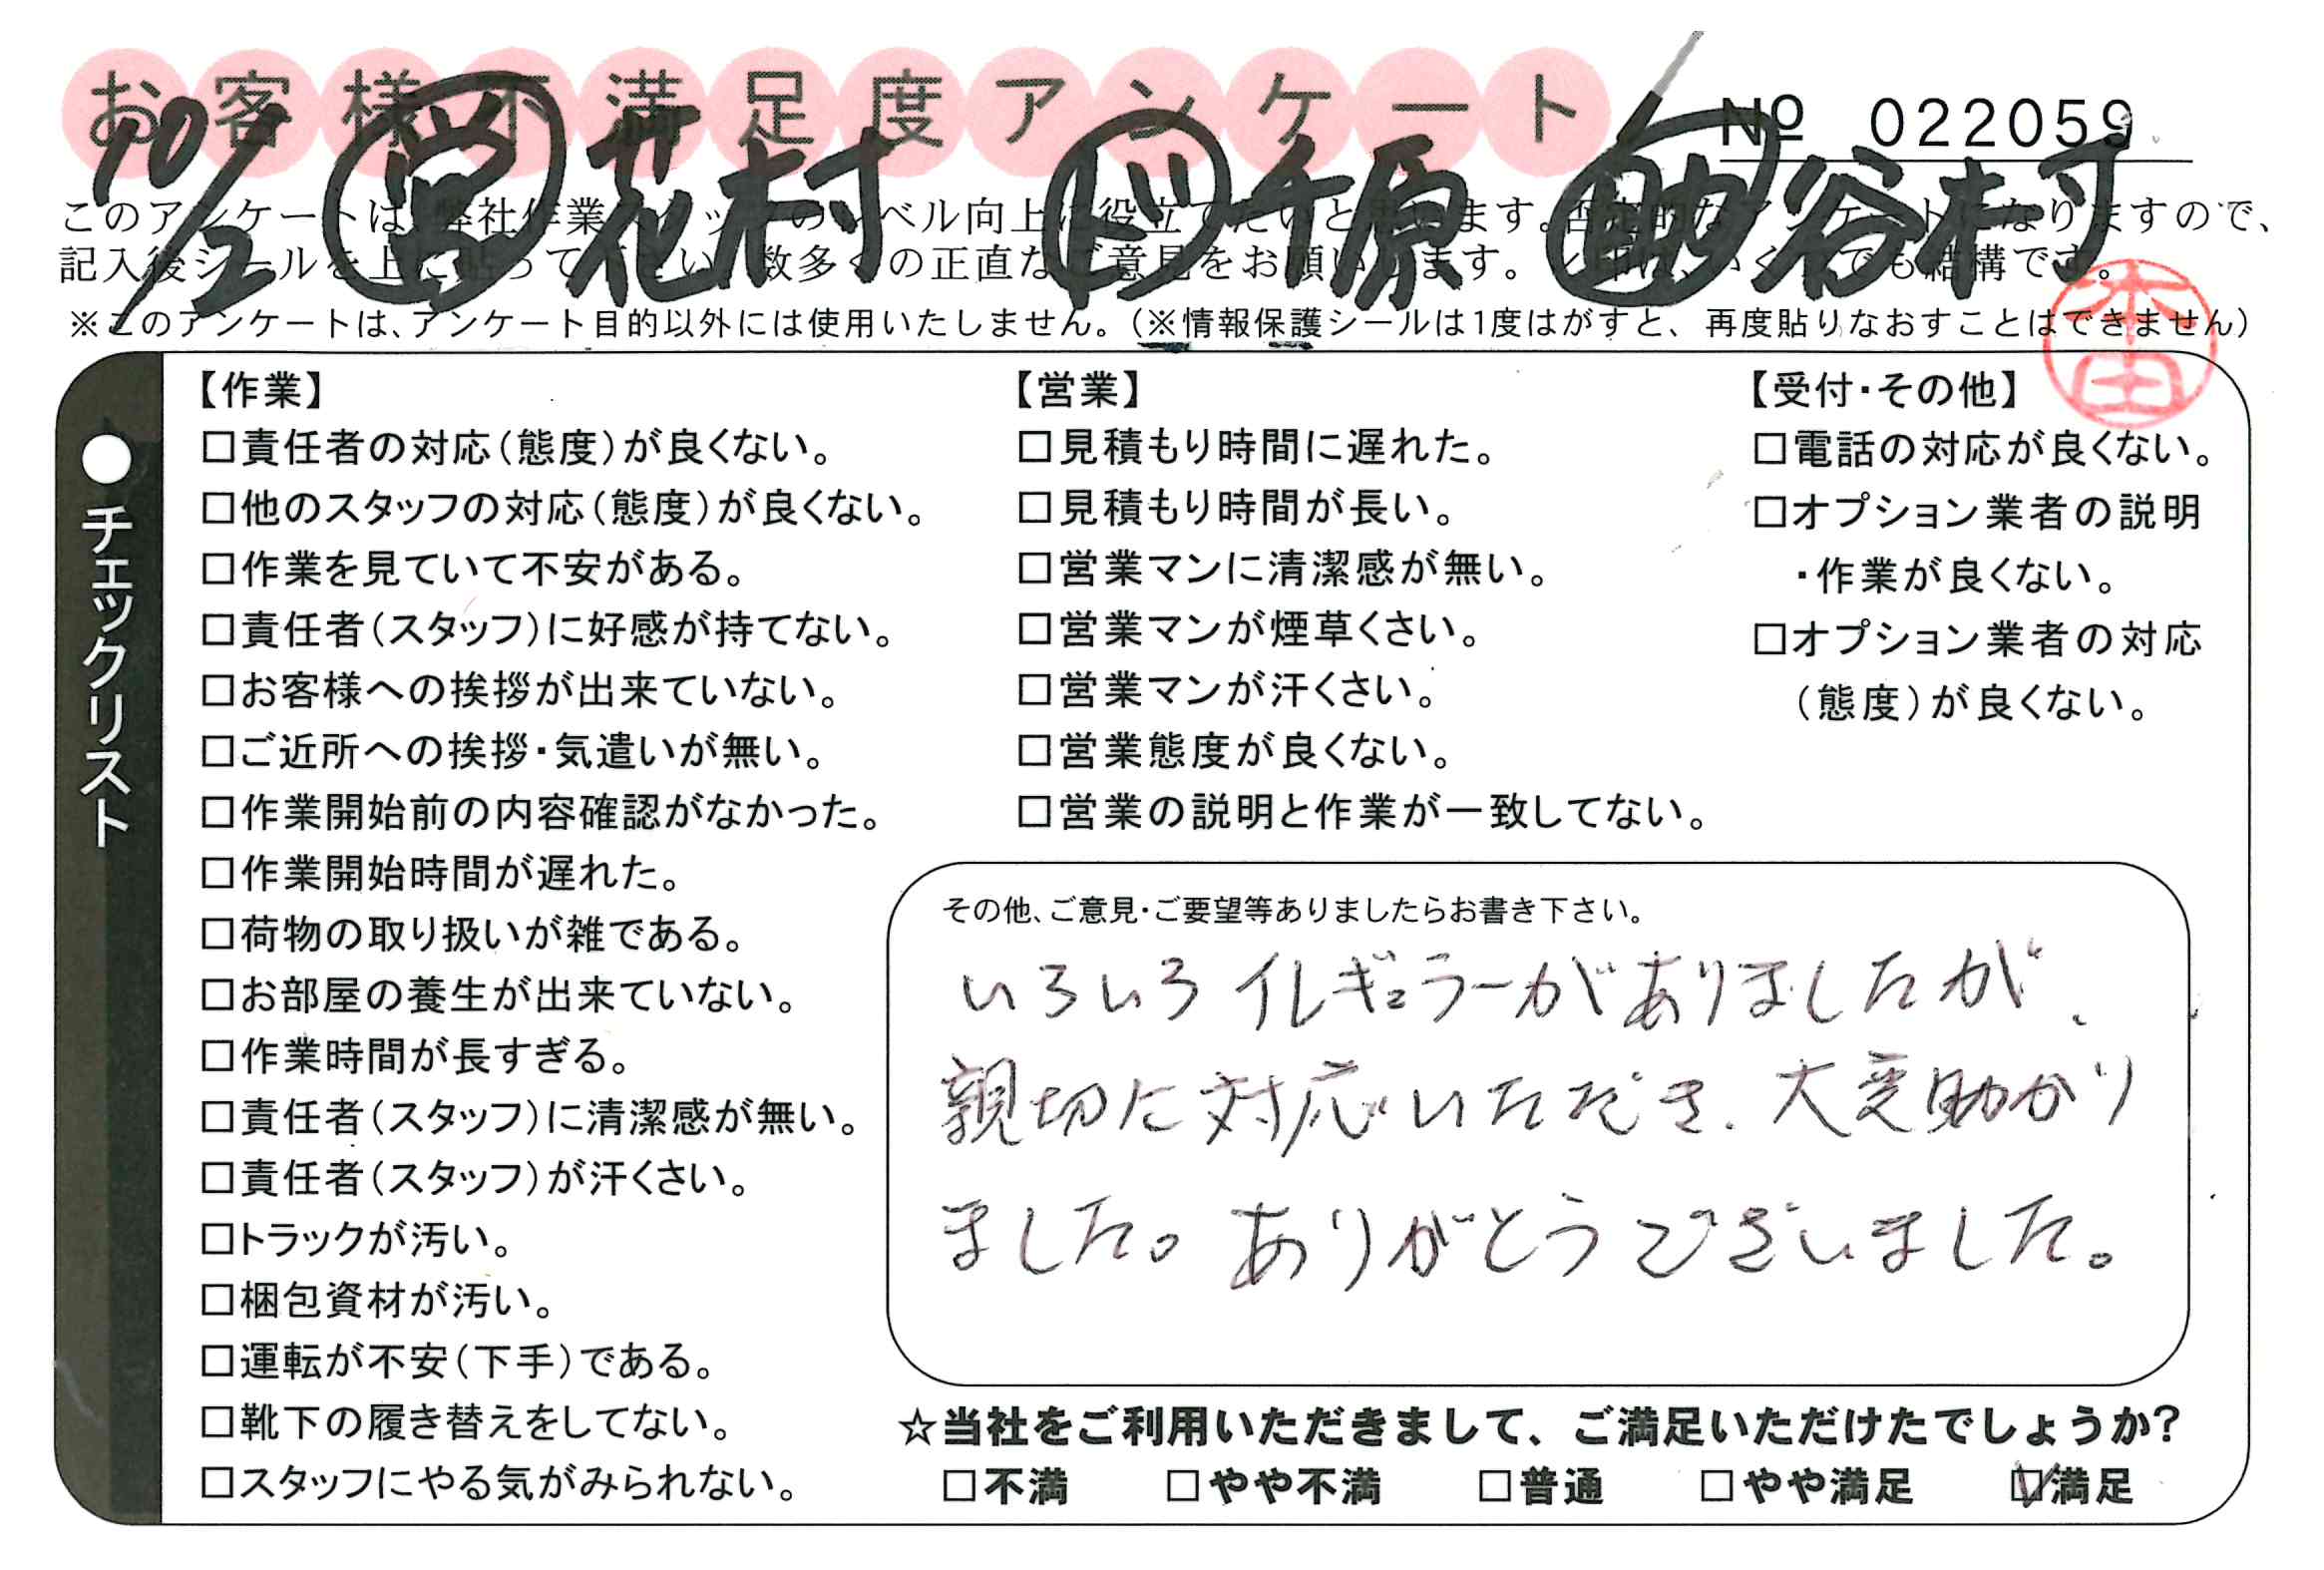 お客様不満足度アンケート
№ 022059
10/2 営 花村 ド 原 助 谷村
このアンケートは、弊社作業スタッフのレベル向上に役立てたいと思います。否定的なアンケートになりますので、
記入後シールを上に貼って下さい。数多くの正直なご意見をお願いします。レ印は、いくつでも結構です。
※このアンケートは、アンケート目的以外には使用いたしません。(※情報保護シールは1度はがすと、再度貼りなおすことはできません)
本田
●チェックリスト
【作業】
□責任者の対応(態度)が良くない。
□他のスタッフの対応(態度)が良くない。
□作業を見ていて不安がある。
□責任者(スタッフ)に好感が持てない。
□お客様への挨拶が出来ていない。
□ご近所への挨拶・気遣いが無い。
□作業開始前の内容確認がなかった。
□作業開始時間が遅れた。
□荷物の取り扱いが雑である。
□お部屋の養生が出来ていない。
□作業時間が長すぎる。
□責任者(スタッフ)に清潔感が無い。
□責任者(スタッフ)が汗くさい。
□トラックが汚い。
□梱包資材が汚い。
□運転が不安(下手)である。
□靴下の履き替えをしてない。
□スタッフにやる気がみられない。
【営業】
□見積もり時間に遅れた。
□見積もり時間が長い。
□営業マンに清潔感が無い。
□営業マンが煙草くさい。
□営業マンが汗くさい。
□営業態度が良くない。
□営業の説明と作業が一致してない。
【受付・その他】
□電話の対応が良くない。
□オプション業者の説明
・作業が良くない。
□オプション業者の対応
(態度)が良くない。
その他、ご意見・ご要望等ありましたらお書き下さい。
いろいろイレギュラーがありましたが、
親切に対応いただき、大変助かり
ました。ありがとうございました。
☆当社をご利用いただきまして、ご満足いただけたでしょうか?
□不満 □やや不満 □普通 □やや満足 ☑満足